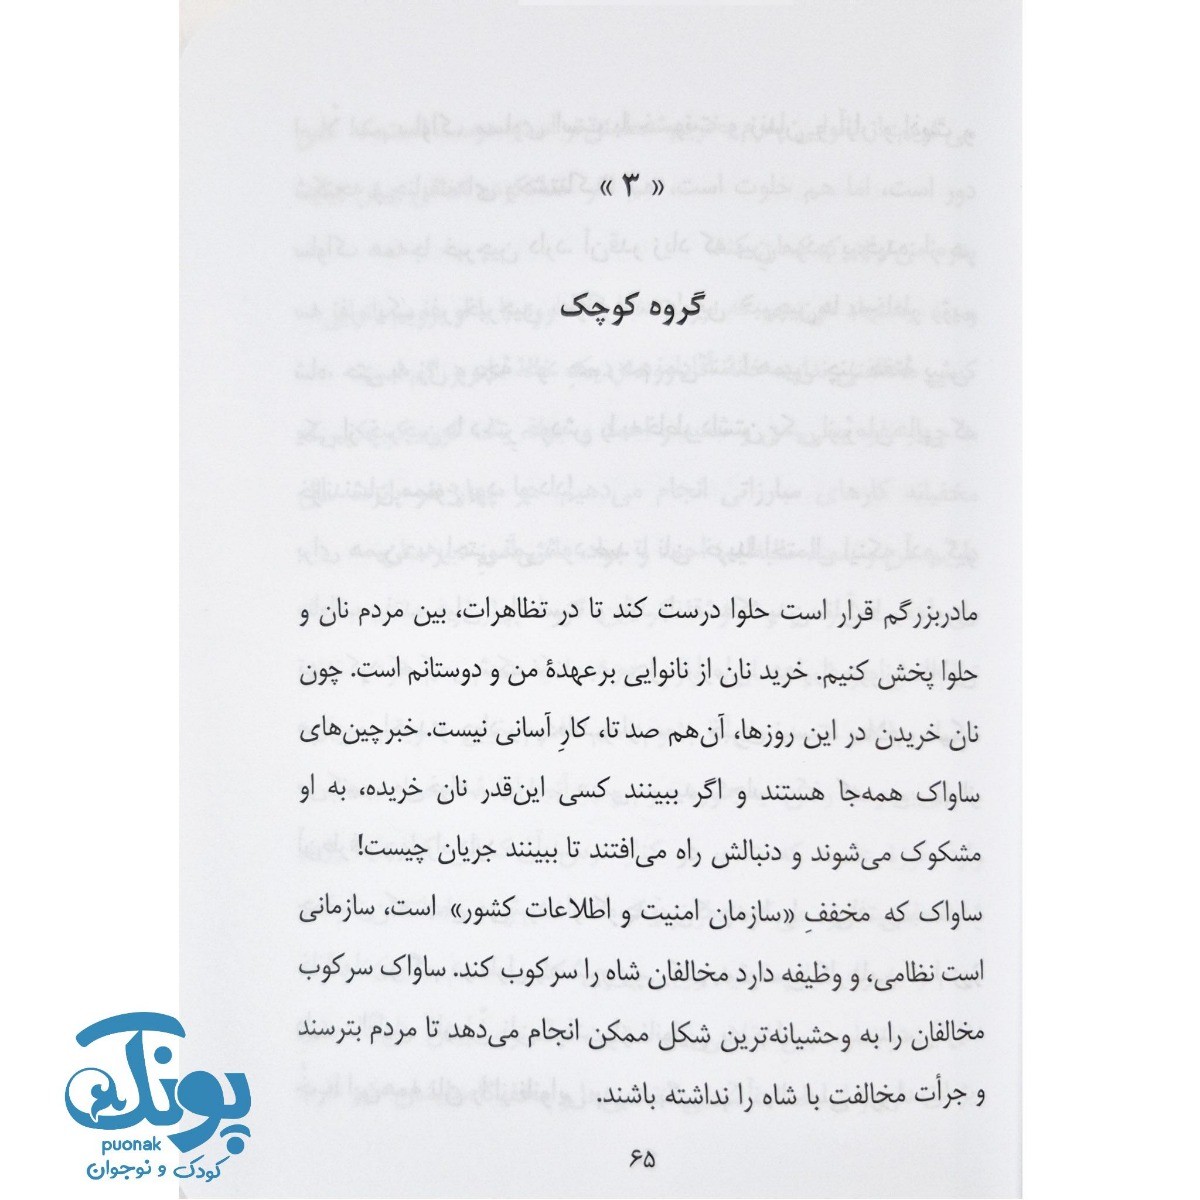 « ۳ »
گروه کوچک
مادربزرگم قرار است حلوا درست کند تا در تظاهرات، بین مردم نان و
حلوا پخش کنیم. خرید نان از نانوایی برعهدهٔ من و دوستانم است. چون
نان خریدن در این روزها، آن‌هم صد تا، کارِ آسانی نیست. خبرچین‌های
ساواک همه‌جا هستند و اگر ببینند کسی این‌قدر نان خریده، به او
مشکوک می‌شوند و دنبالش راه می‌افتند تا ببینند جریان چیست!
ساواک که مخففِ «سازمان امنیت و اطلاعات کشور» است، سازمانی
است نظامی، و وظیفه دارد مخالفان شاه را سرکوب کند. ساواک سرکوب
مخالفان را به وحشیانه‌ترین شکل ممکن انجام می‌دهد تا مردم بترسند
و جرأت مخالفت با شاه را نداشته باشند.
۶۵
پونک
puonak
کودک و نوجوان